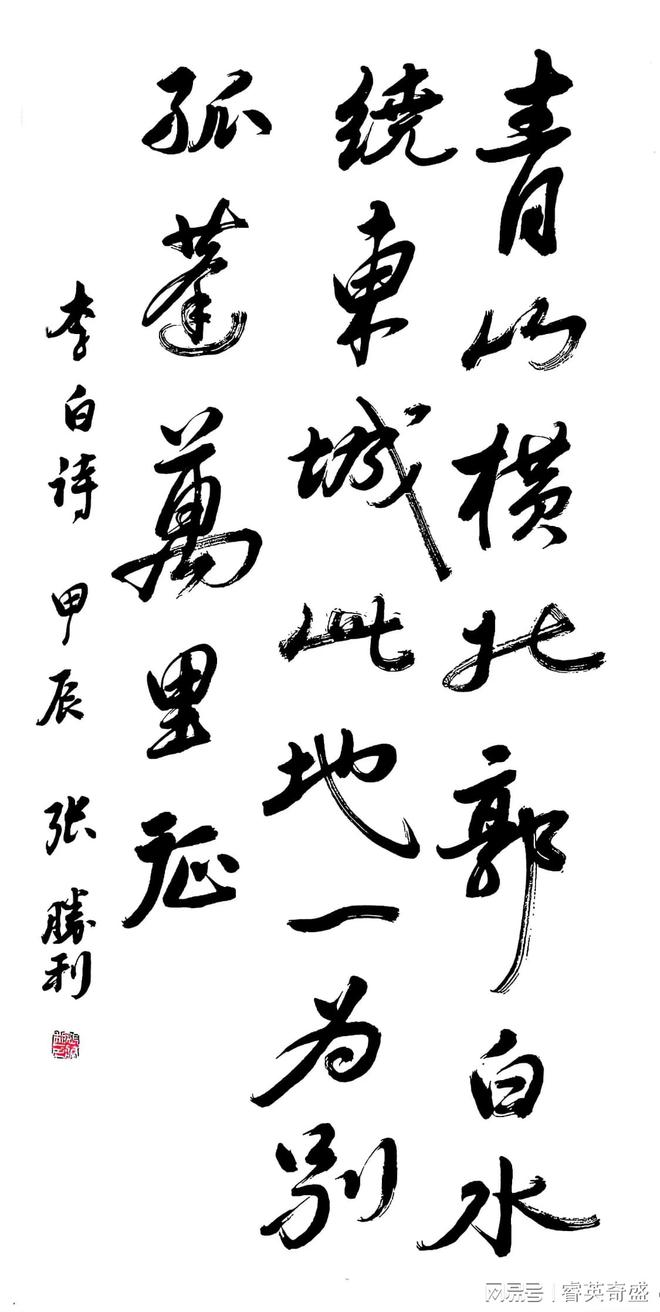 青山橫北郭白水
繞東城此地一为別
孤蓬萬里征
李白诗 甲辰 张勝利
网易号 | 睿英奇盛